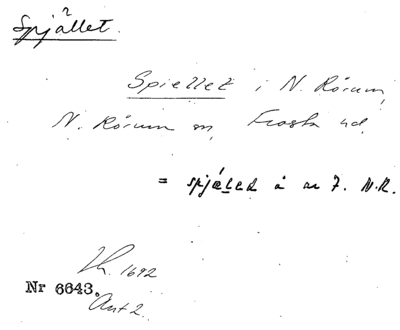 Spjället.
Spiellet i N. Rörum,
N. Rörum sn, Frosta hd.
= spjæled å nr 7. N.R.
Lh. 1692
Nr 6643.
Ant 2.